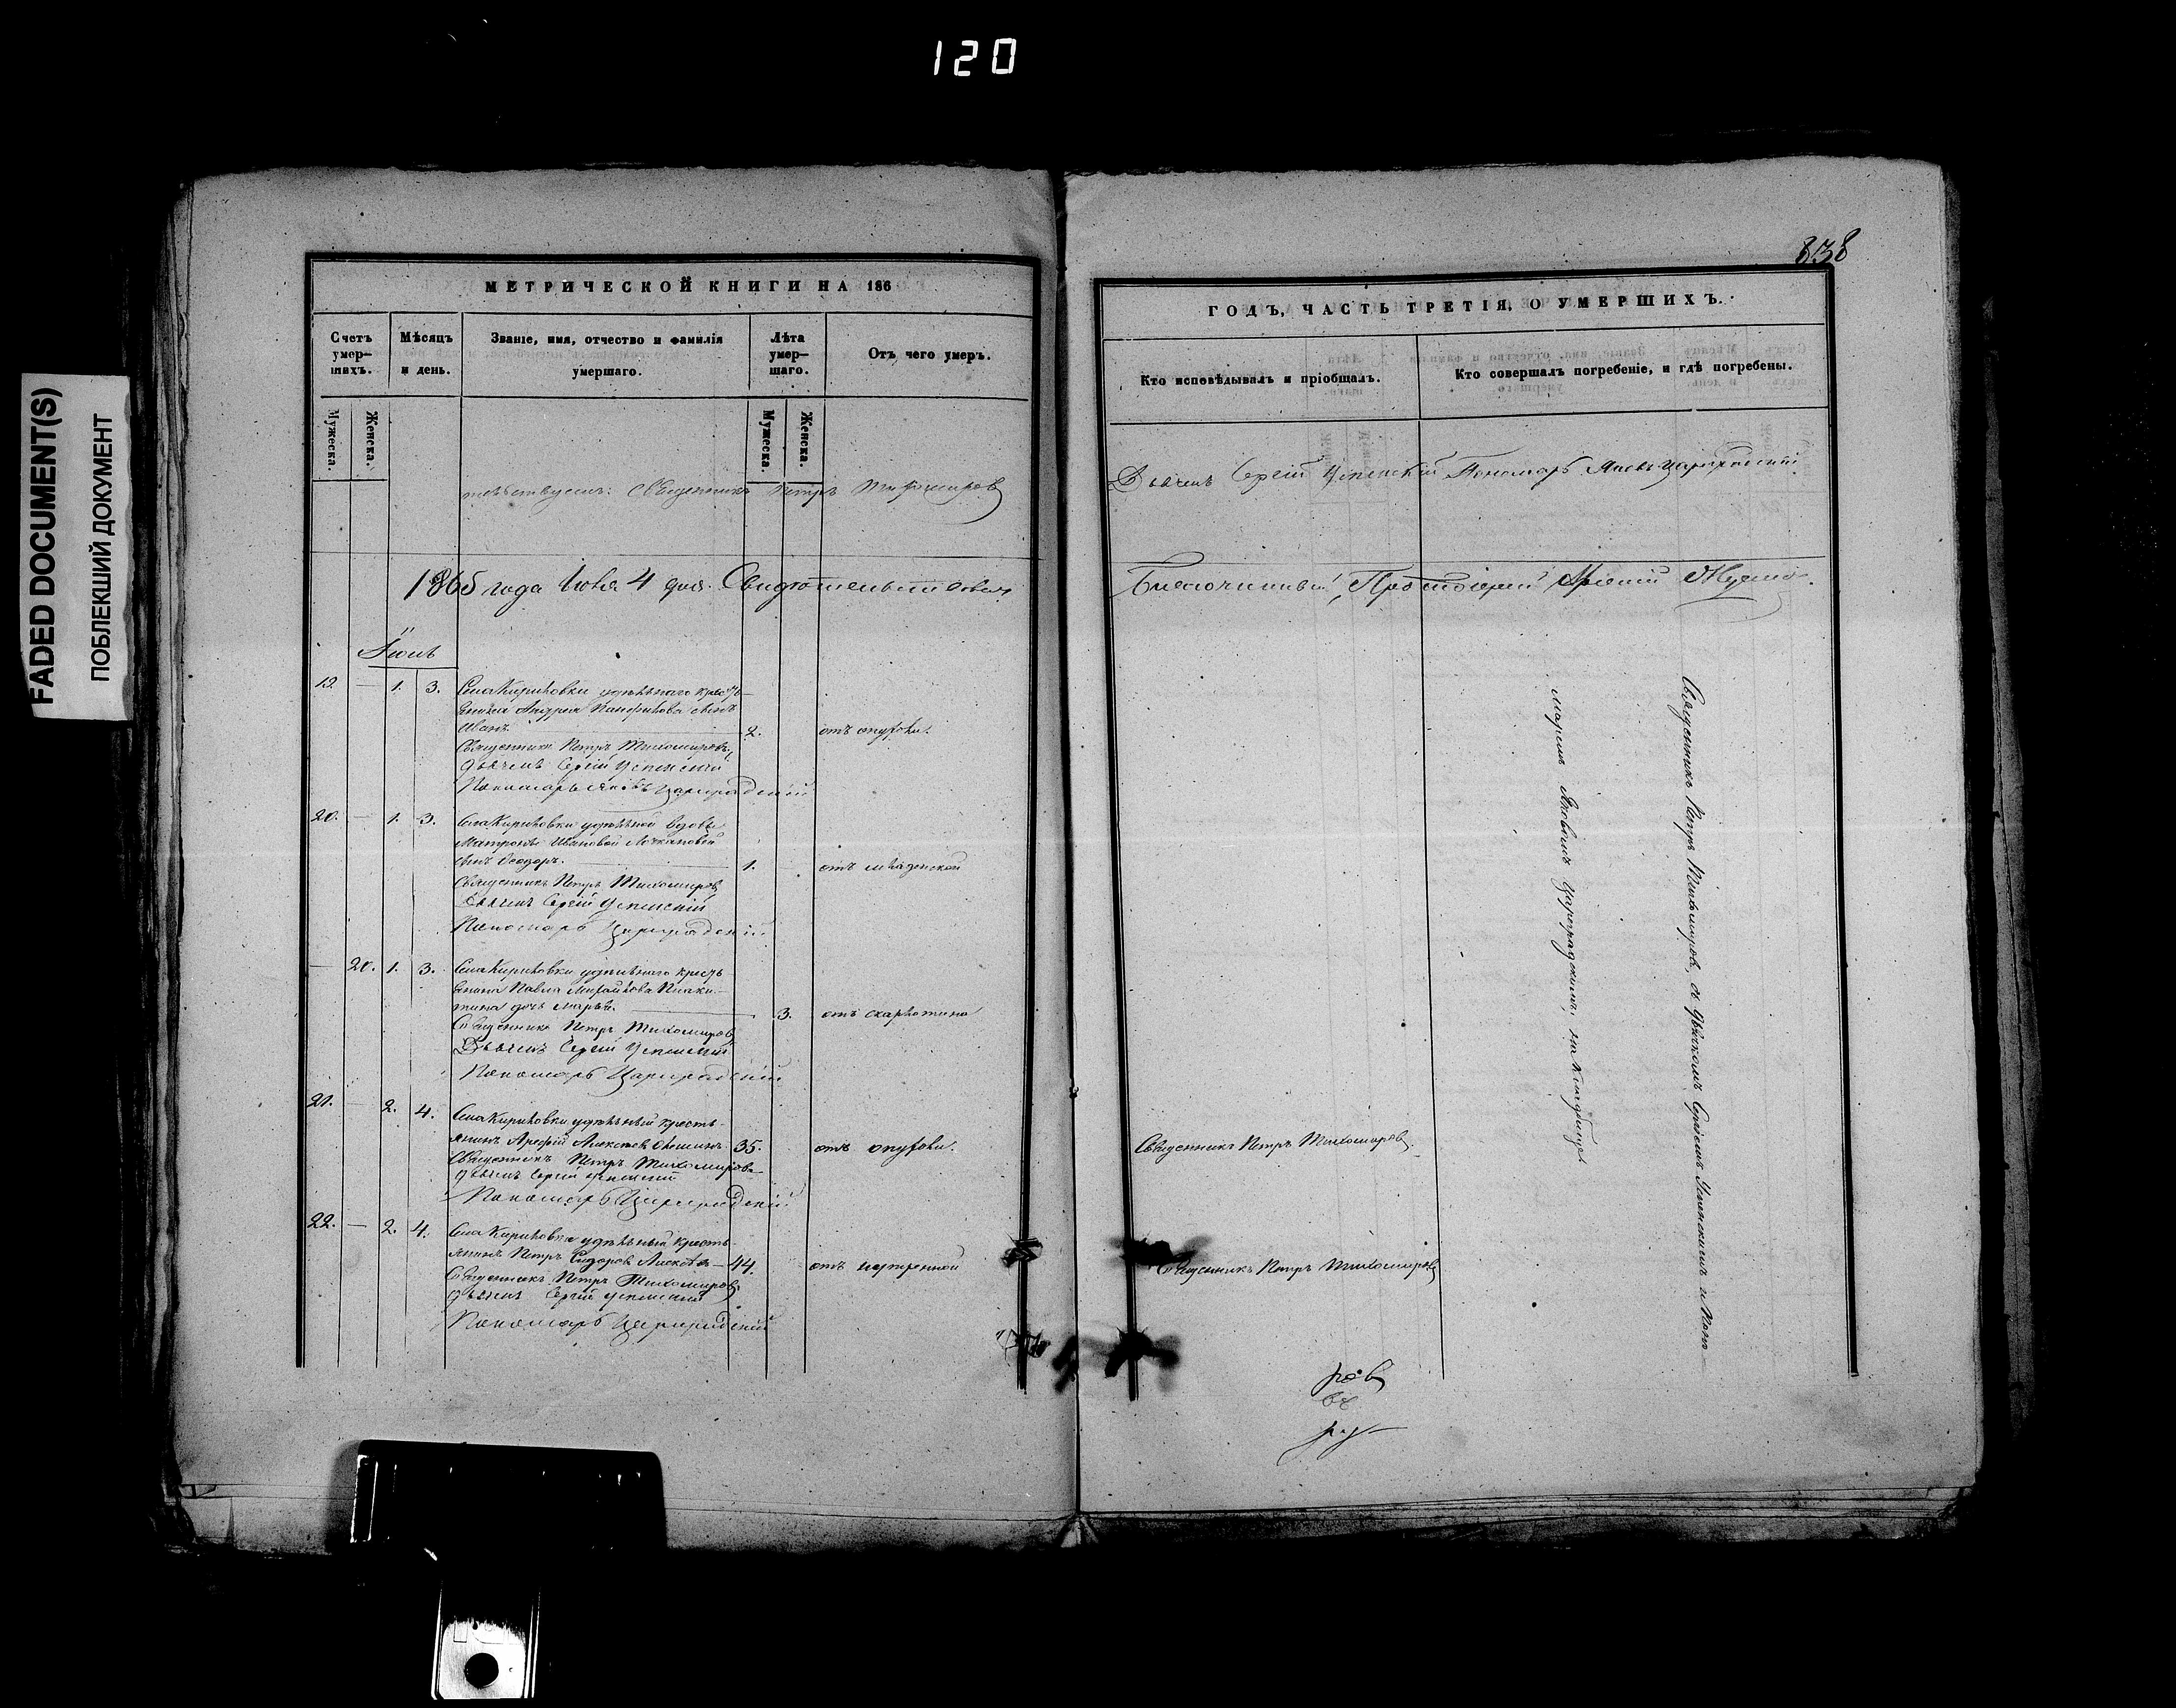 120
FADED DOCUMENT(S)
ПОБЛЕКШИЙ ДОКУМЕНТ
МЕТРИЧЕСКОЙ КНИГИ НА 186
Счетъ умер-шихъ.
Мѣсяцъ и день.
Званіе, имя, отчество и фамилія умершаго.
Лѣта умер-шаго.
Отъ чего умеръ.
Мужеска.
Женска.
Мужеска.
Женска.
Священникъ Петръ Тихомировъ
1865 года Іюня 4 дня. Свидѣтельствовалъ
Іюнь
19. — 1. 3. Села Кириловки удѣльнаго кресть-
янина Андрея Панфилова сынъ
Иванъ. 2. отъ опухоли.
Священникъ Петръ Тихомировъ,
Дьячекъ Сергій Успенскій
Пономарь Яковъ Цареградскій
20. — 1. 3. Села Кириловки удѣльной вдовы
Матроны Ивановой
сынъ Ѳеодоръ. 1. отъ младенской
Священникъ Петръ Тихомировъ
Дьячекъ Сергій Успенскій
Пономарь Цареградскій
— 20. 1. 3. Села Кириловки удѣльнаго кресть-
янина Павла Михайлова
дочь Марья. 3. отъ скарлатина
Священникъ Петръ Тихомировъ
Дьячекъ Сергій Успенскій
Пономарь Цареградскій
21. — 2. 4. Села Кириловки удѣльный кресть-
янинъ Арефій Алексѣевъ 35. отъ опухоли.
Священникъ Петръ Тихомировъ
Дьячекъ Сергій Успенскій
Пономарь Цареградскій
22. — 2. 4. Села Кириловки удѣльный кресть-
янинъ Петръ Сидоровъ 44. отъ
Священникъ Петръ Тихомировъ
Дьячекъ Сергій Успенскій
Пономарь Цареградскій
838
ГОДЪ, ЧАСТЬ ТРЕТІЯ, О УМЕРШИХЪ.
Кто исповѣдывалъ и пріобщалъ.
Кто совершалъ погребеніе, и гдѣ погребены.
Дьячекъ Сергій Успенскій Пономарь Яковъ Цареградскій
Благочинный, Протоіерей
Священникъ Петръ Тихомировъ, съ дьячкомъ Сергіемъ Успенскимъ и Поно-
маремъ Яковомъ Цареградскимъ, на кладбищѣ
Священникъ Петръ Тихомировъ.
Священникъ Петръ Тихомировъ